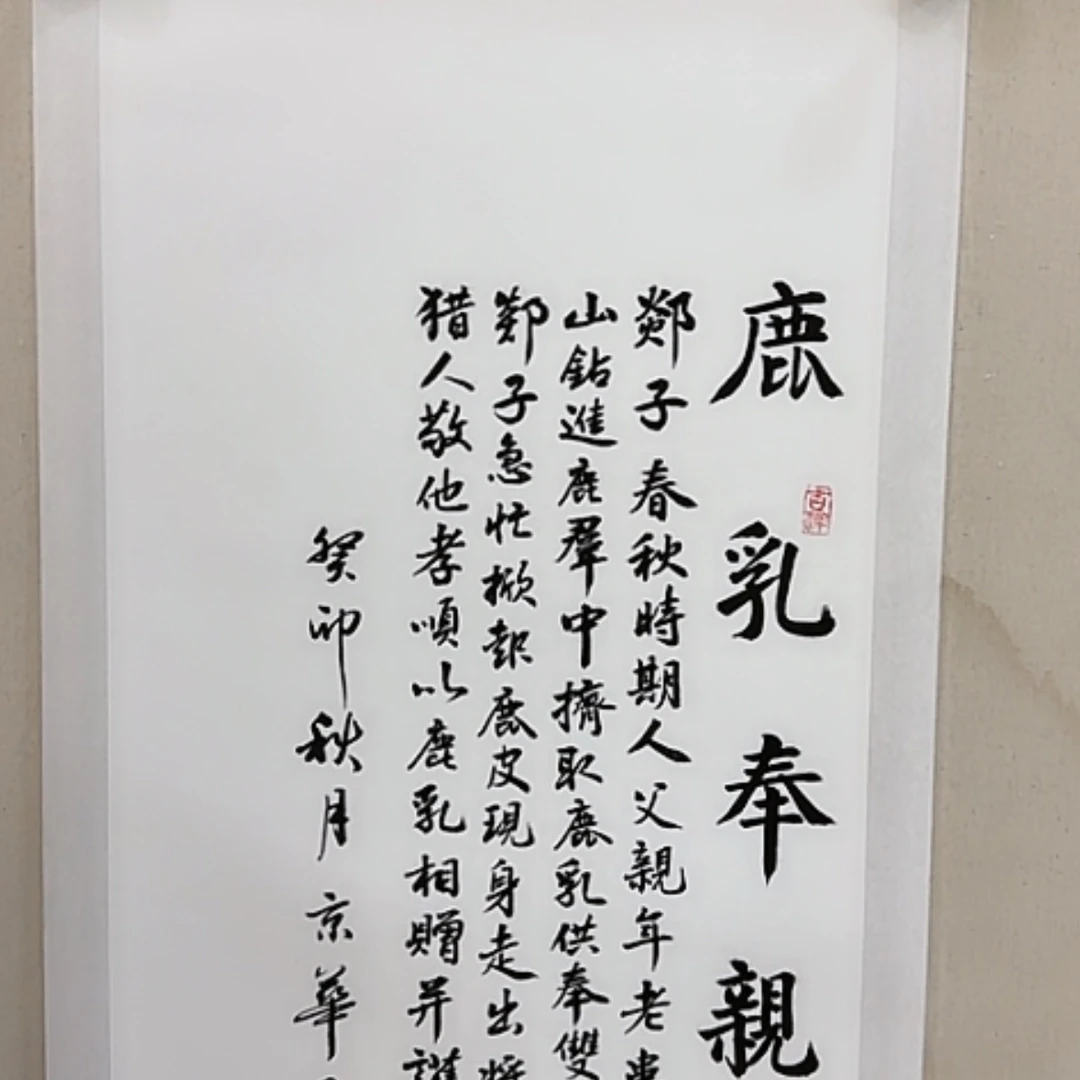 鹿乳奉親
郯子春秋時期人父親年老患
山鉆進鹿羣中擠取鹿乳供奉雙
郯子急忙掀起鹿皮現身走出將
猎人敬他孝順以鹿乳相贈并護
癸卯秋月京華